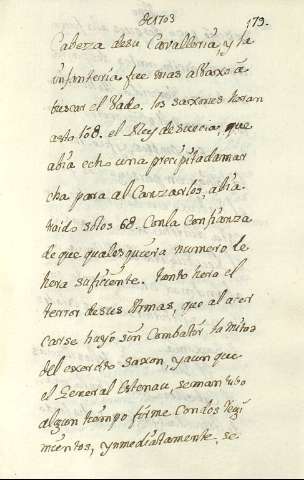 de 1703
173.
Cabeza desu Cavalleria, y la
infanteria fue mas abaxo a
buscar el Vado, los saxones heran
asta 108. el Rey de suecia, que
abia echo una precipitada mar
cha para alcanzarlos, abia
traido solos 68. Conla Confianza
de que qualesquiera numero le
hera suficiente. tanto hera el
terror desus Armas, que al acer
carse huyó sin Combatir la mitad
del exercito saxon, y aun que
el General Estenau, seman tubo
algun tiempo firme Con dos Regi
mientos, ynmediatamente, se